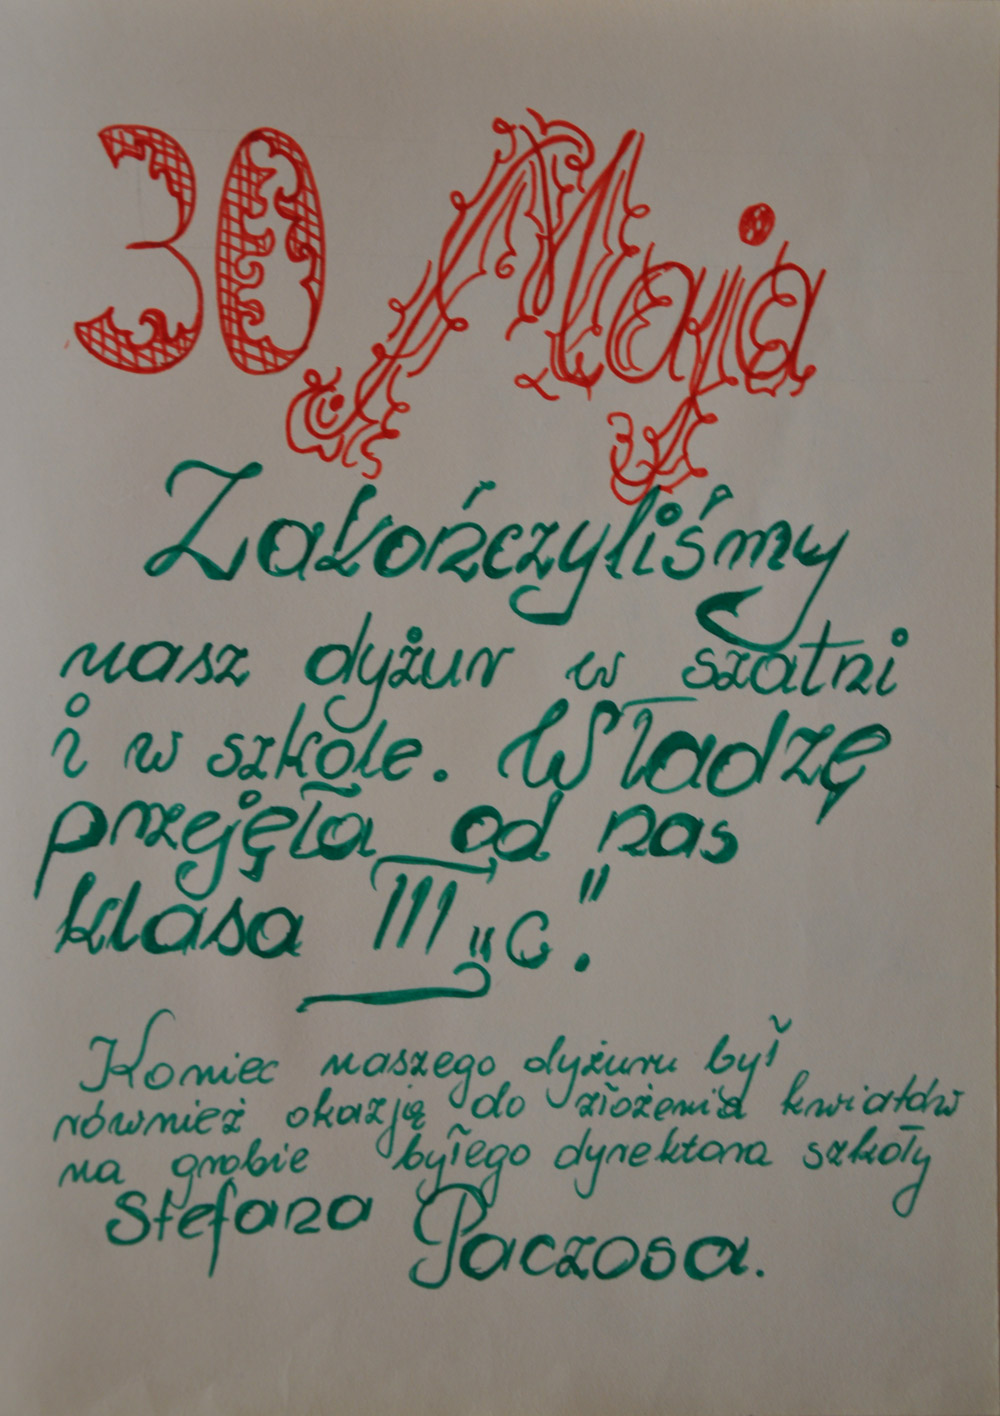 30 Maja
Zakończyliśmy
nasz dyżur w szatni
i w szkole. Władzę
przejęła od nas
klasa III „c".
Koniec naszego dyżuru był
również okazją do złożenia kwiatów
na grobie byłego dyrektora szkoły
Stefana Paczosa.